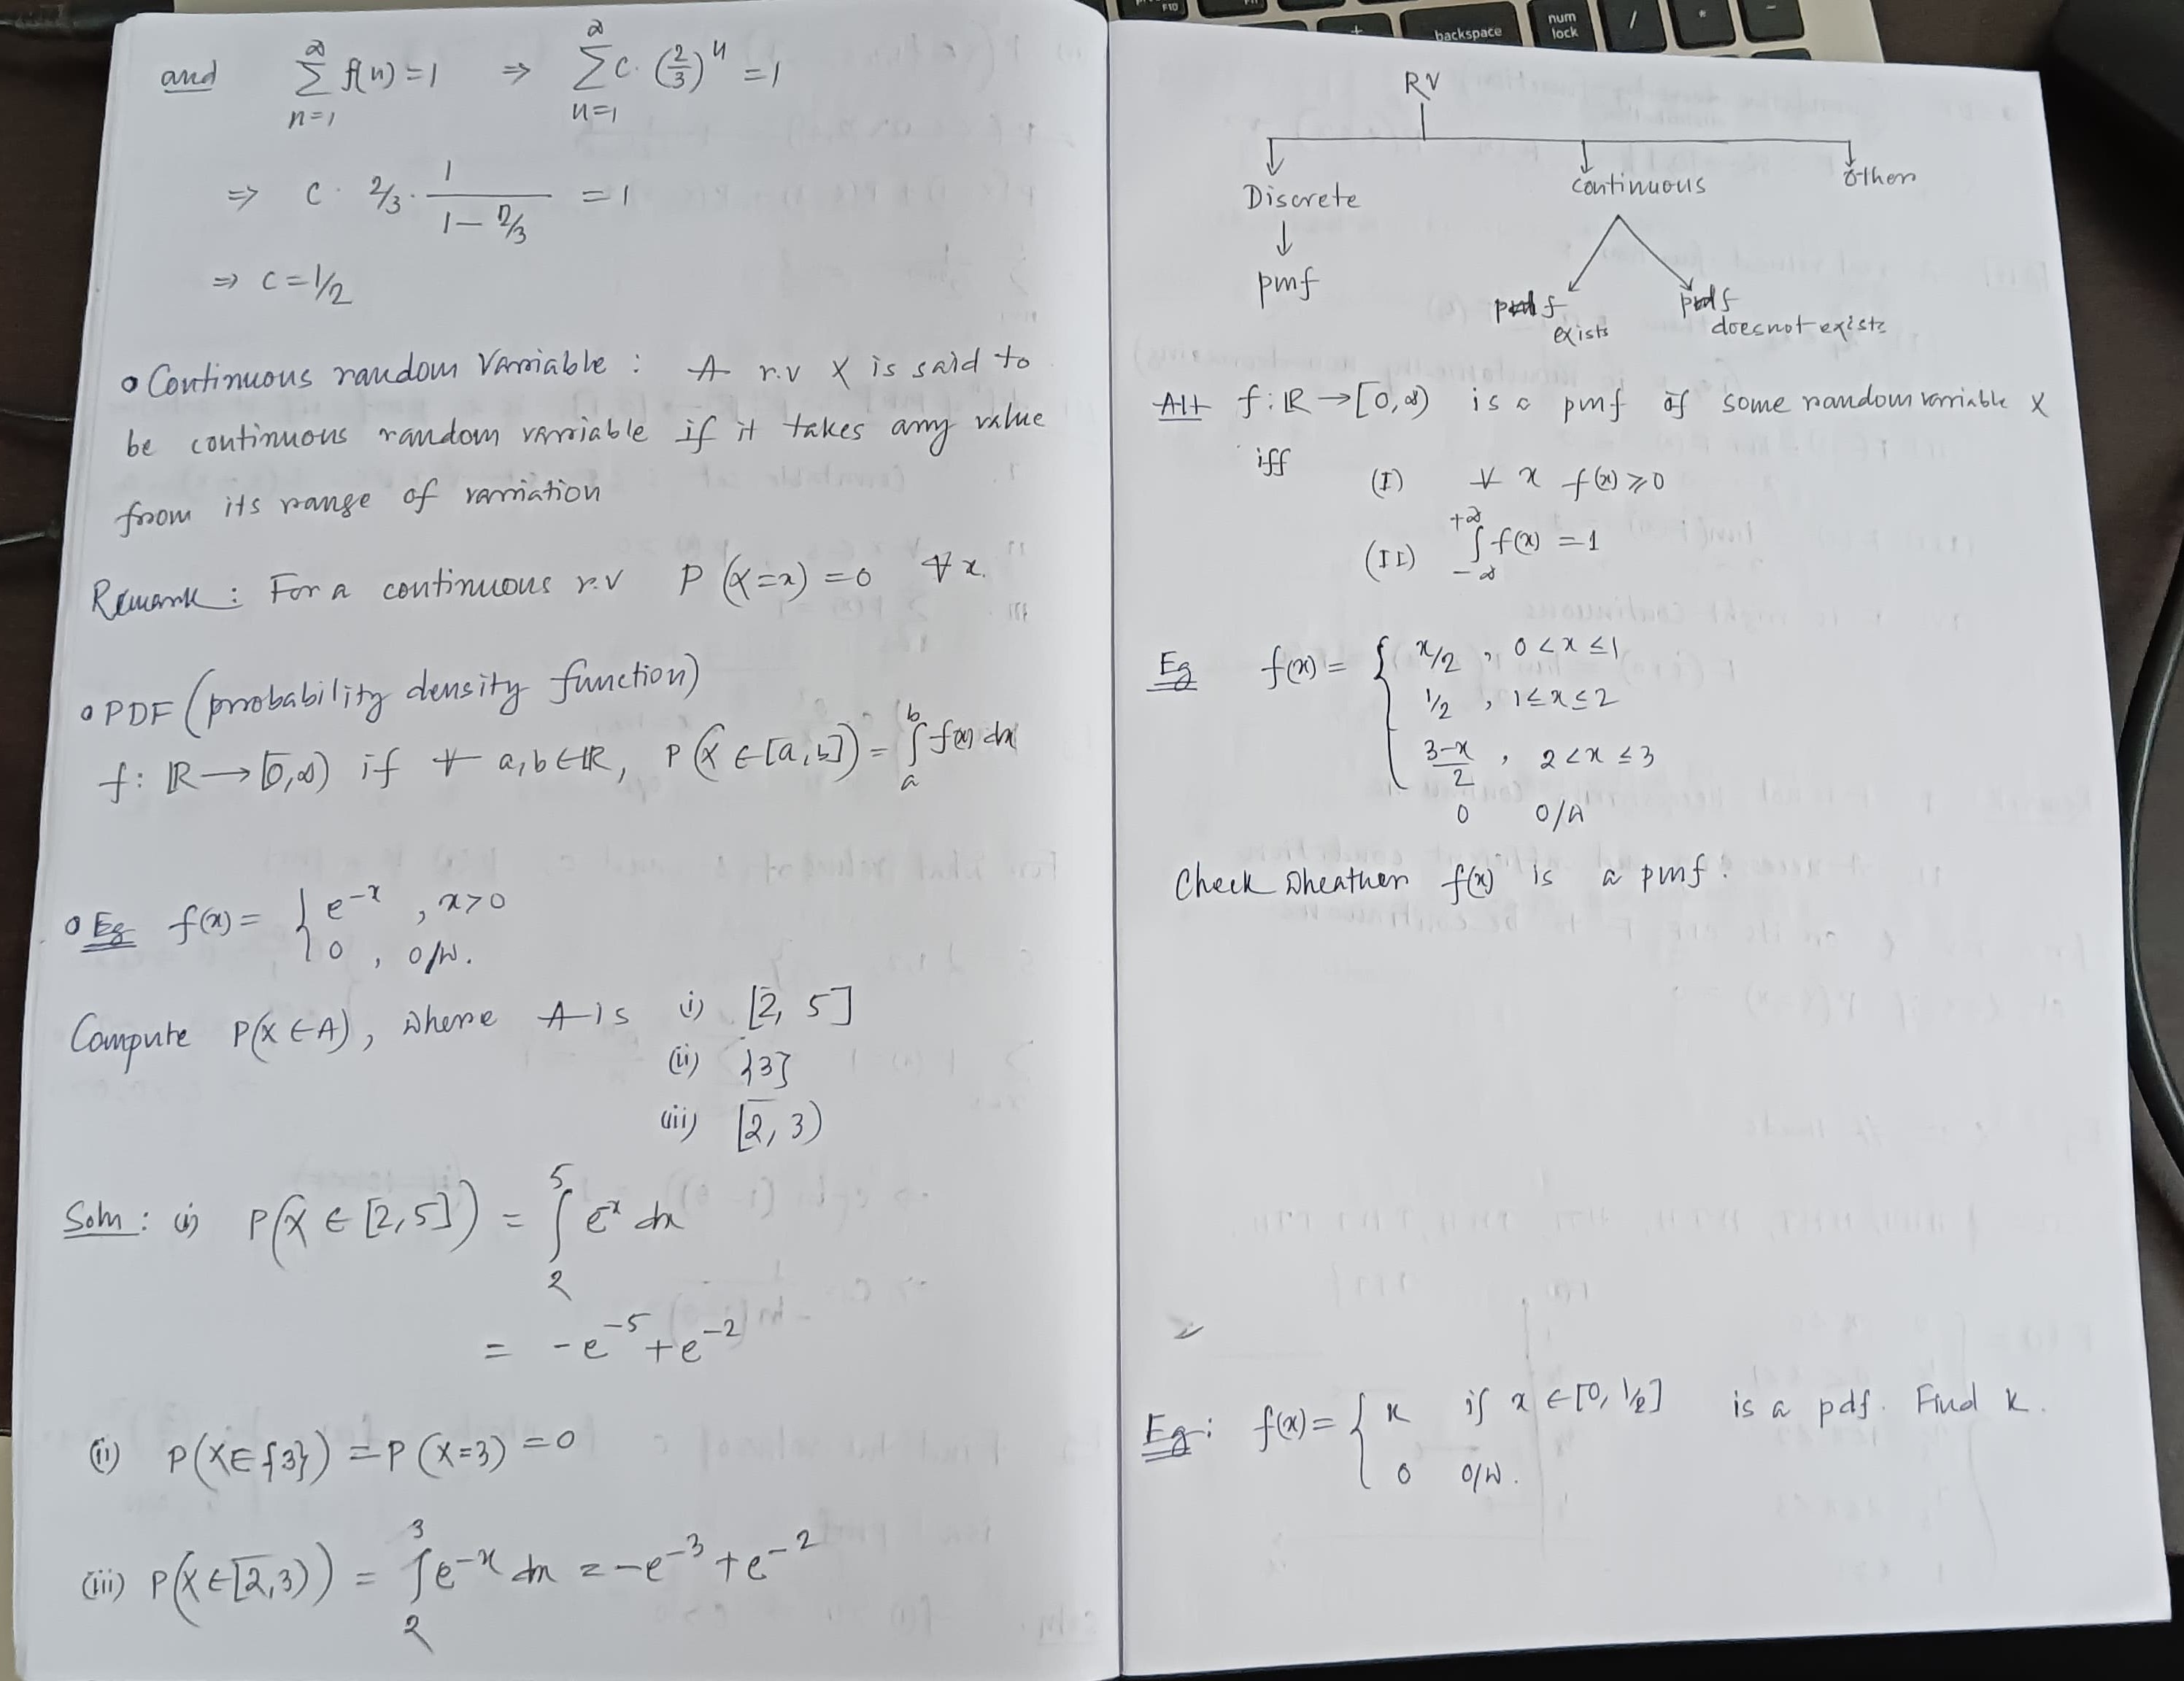 and ∞∑n=1 f(n) = 1 ⇒ ∞∑n=1 c. (2/3)^n = 1
⇒ c. 2/3 . 1/(1 - 2/3) = 1
⇒ c = 1/2
o Continuous random Variable : A r.v X is said to
be continuous random variable if it takes any value
from its range of variation
Remark : For a continuous r.v P(X=x) = 0 ∀ x.
o PDF (probability density function)
f: ℝ → [0,∞) if ∀ a,b ∈ ℝ, P(X ∈ [a,b]) = ∫_a^b f(x) dx
o Eg f(x) = { e^-x , x>0
0 , o/w.
Compute P(X ∈ A), where A is i) [2, 5]
(ii) {3}
(iii) [2, 3)
Soln : (i) P(X ∈ [2,5]) = ∫_2^5 e^x dx
= -e^-5 + e^-2
(ii) P(X ∈ {3}) = P(X=3) = 0
(iii) P(X ∈ [2,3)) = ∫_2^3 e^-x dx = -e^-3 + e^-2
RV
Discrete continuous other
pmf pdf exists pdf does not exists
Alt f: ℝ → [0,∞) is a pmf of some random variable X
iff (I) ∀ x f(x) ≥ 0
(II) ∫_-∞^+∞ f(x) = 1
Eg f(x) = { x/2 , 0 < x ≤ 1
1/2 , 1 ≤ x ≤ 2
(3-x)/2 , 2 < x ≤ 3
0 o/w
Check wheather f(x) is a pmf?
Eg: f(x) = { k if x ∈ [0, 1/2] is a pdf. Find k.
0 o/w.
F10
backspace
num lock
/
*
-
+